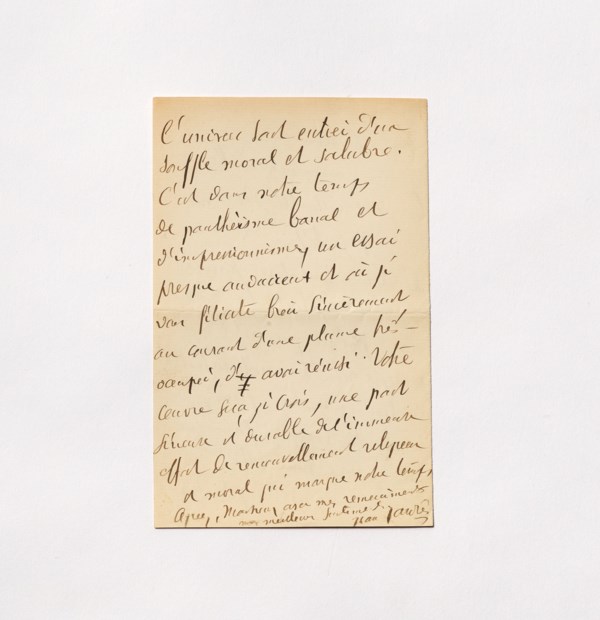 l'univers tout entier d'un
souffle moral et salubre.
C'est dans notre temps
de panthéisme banal et
d'impressionnisme, un essai
presque audacieux et où je
vous félicite bien sincèrement
au courant d'une plume très-
occupée, d'y avoir réussi. Votre
œuvre sera, je crois, une part
sincère et durable de l'immense
effort de renouvellement religieux
et moral qui marque notre temps.
Agréez, Monsieur, avec mes remerciements
mes meilleurs sentiments
Jean Jaurès